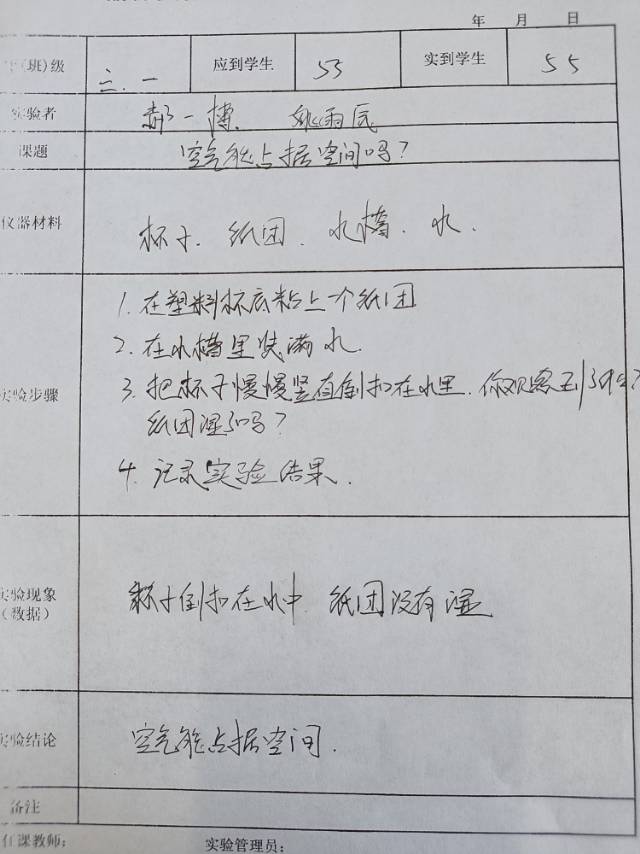 年 月 日
(班)级 三.一 应到学生 55 实到学生 55
实验者 郝一博. 姚雨辰
课题 空气能占据空间吗?
仪器材料 杯子. 纸团. 水槽. 水.
实验步骤
1. 在塑料杯底粘上一个纸团
2. 在水槽里装满水.
3. 把杯子慢慢竖直倒扣在水里. 你观察到了什么?
纸团湿了吗?
4. 记录实验结果.
实验现象
(数据)
杯子倒扣在水中. 纸团没有湿
实验结论 空气能占据空间.
备注
任课教师: 实验管理员: